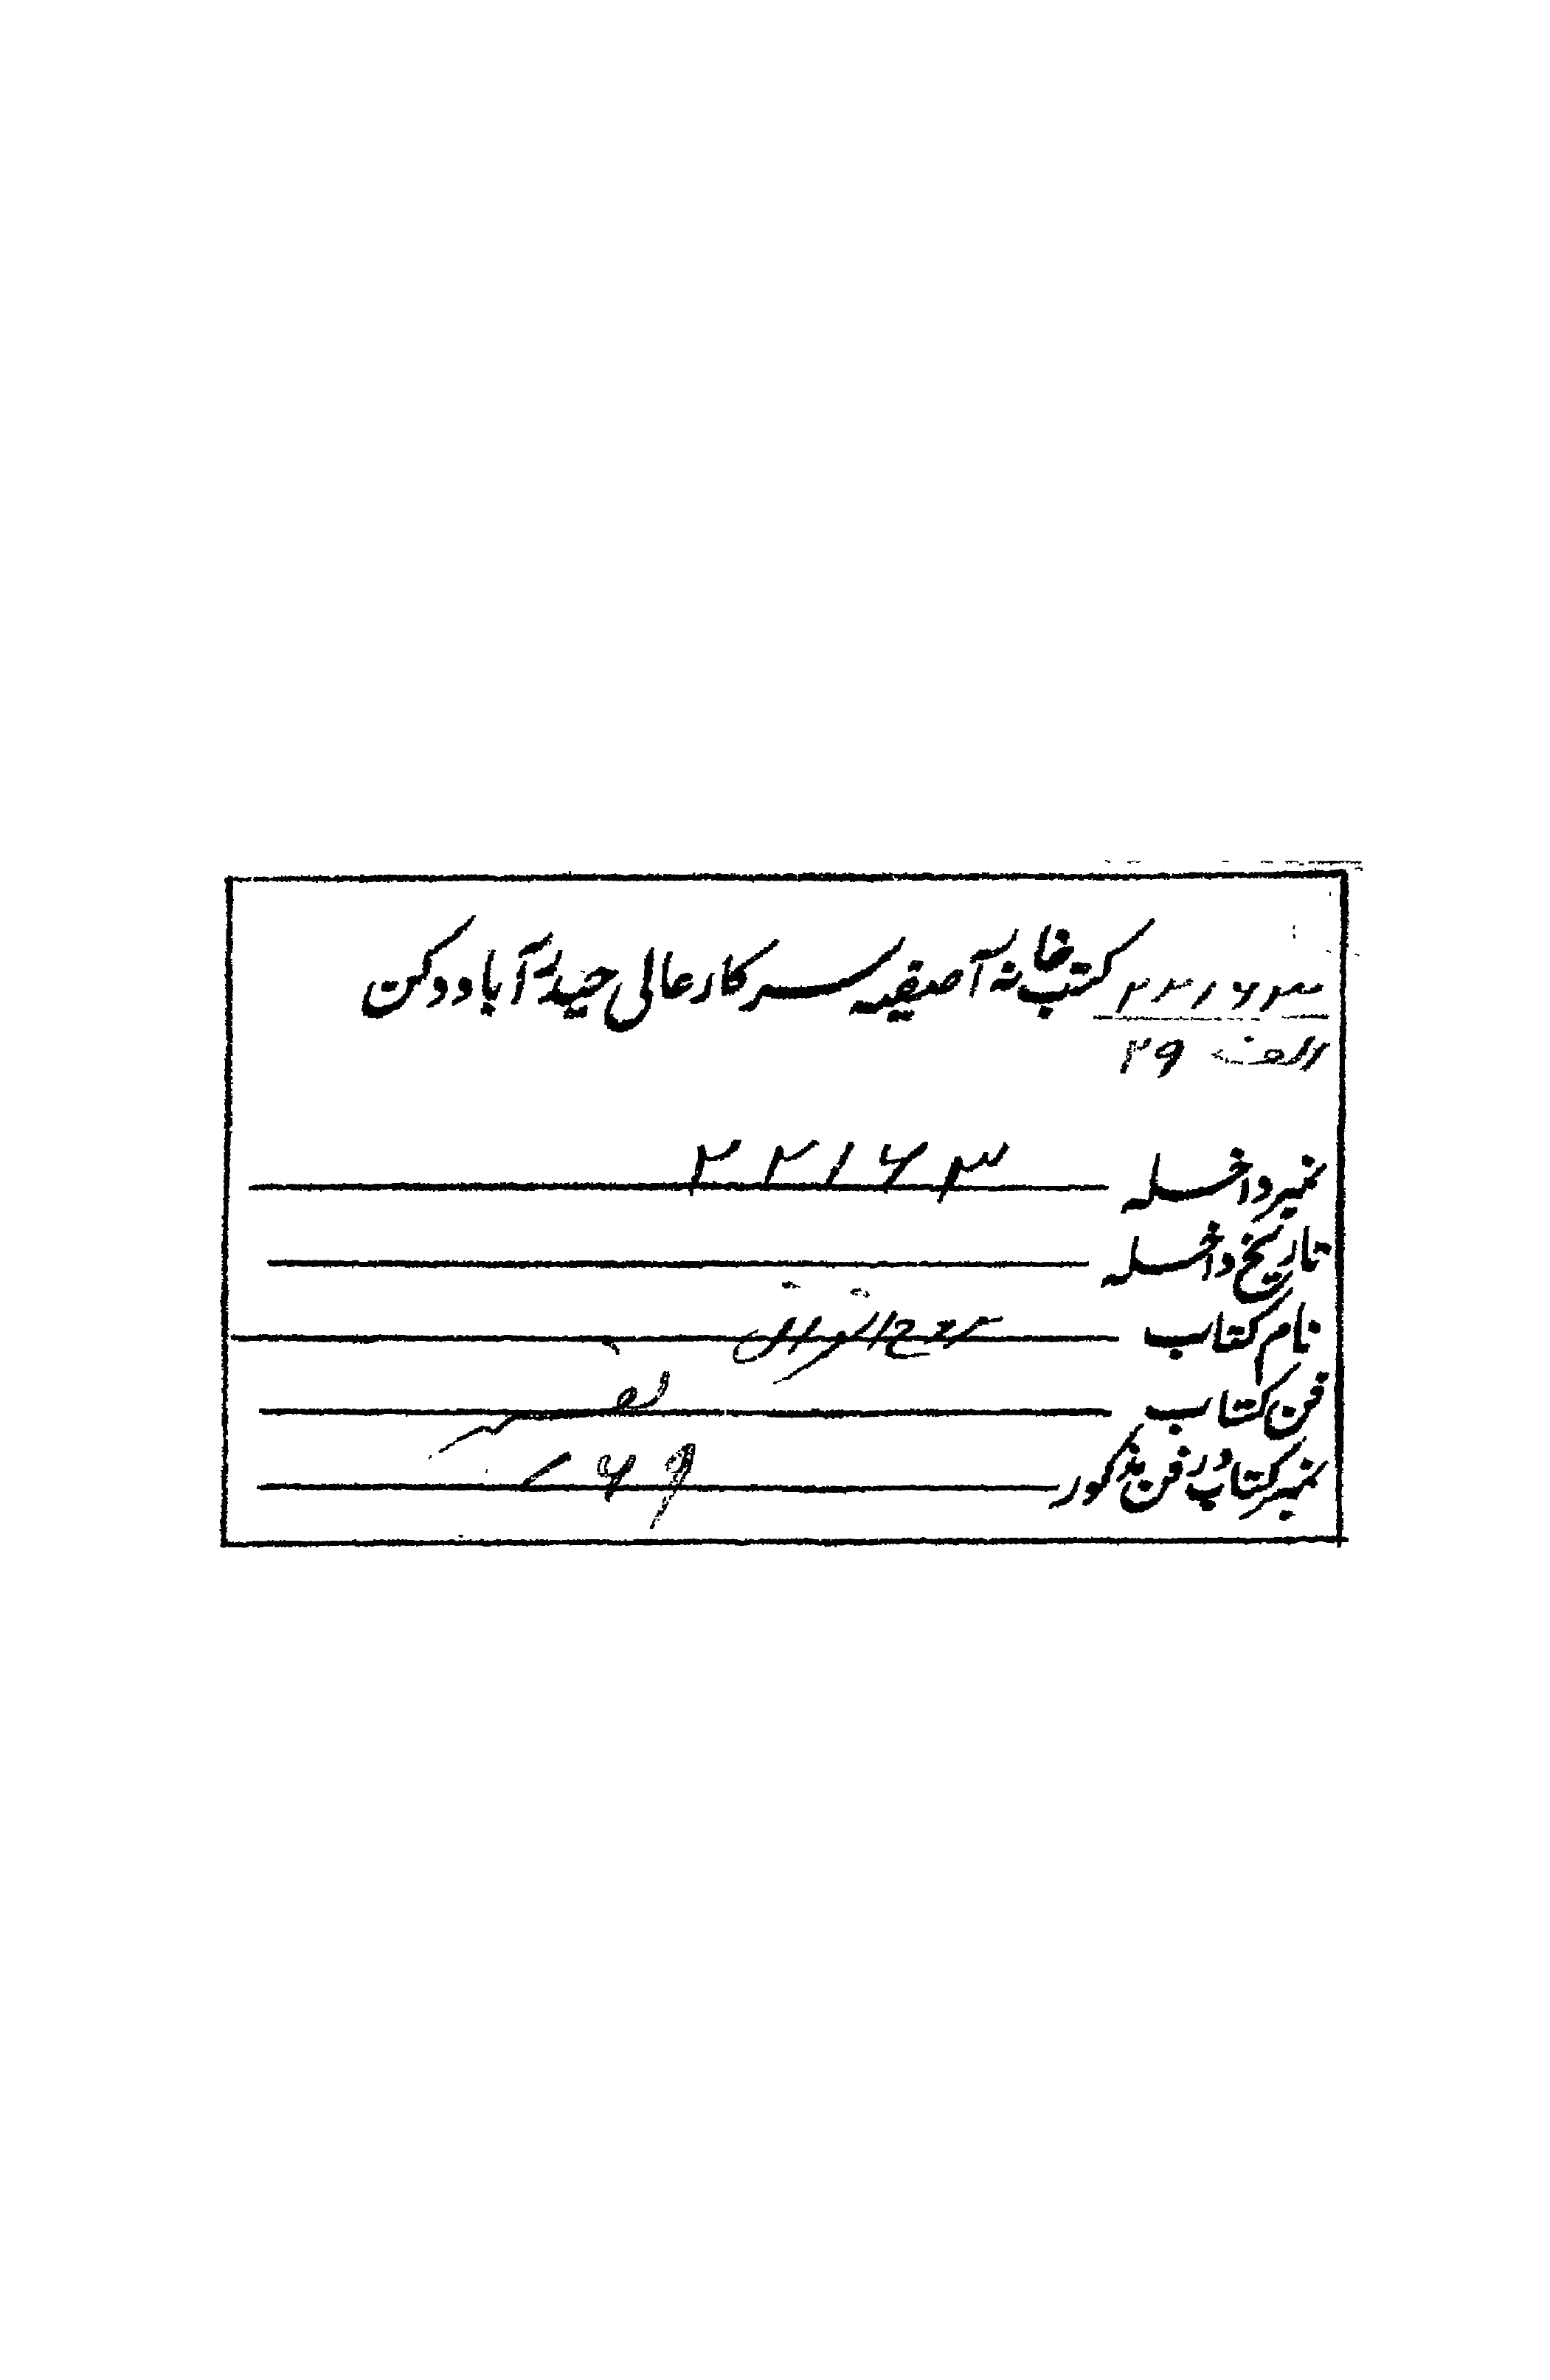 کتب خانہ آصفیہ سرکار عالی حیدرآباد دکن
۲۲۱۶۳
الف ۲۹
نمبر داخلہ ۲۲۱۶۳
تاریخ داخلہ
نام کتاب روح القرآن
فن کتاب تفسیر
نمبر کتاب در فن مذکور